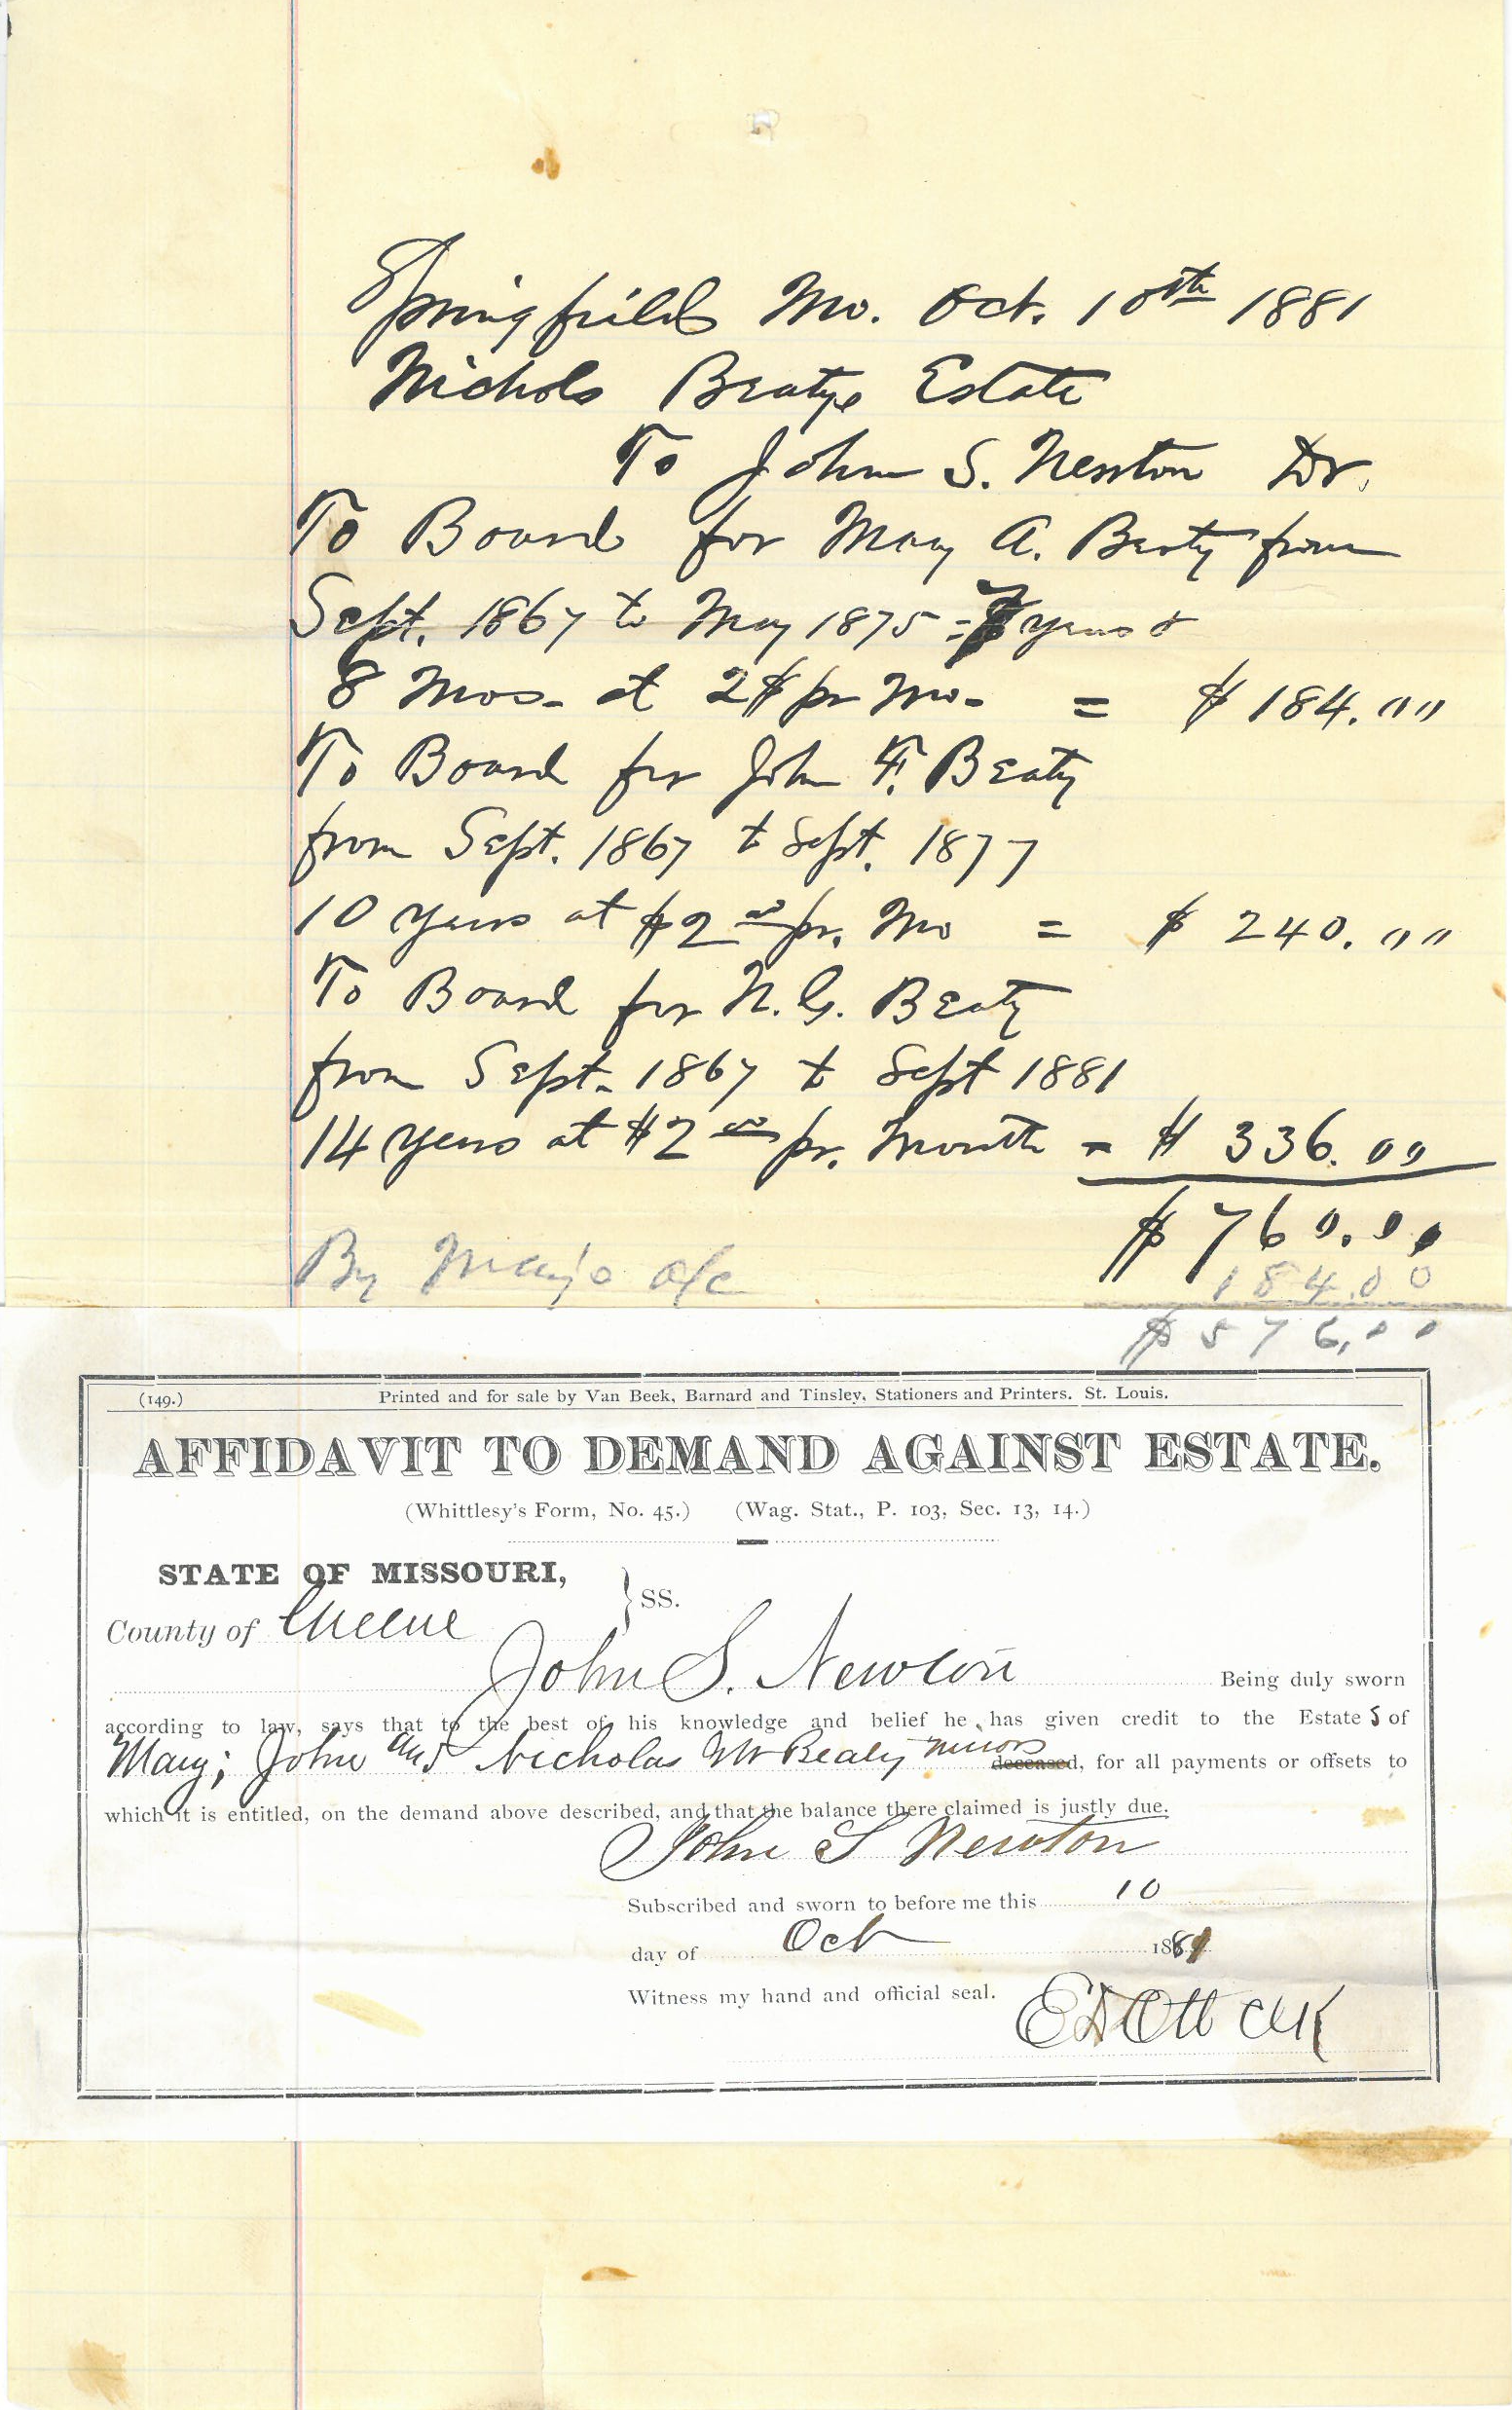 Springfield Mo. Oct. 10th 1881
Nichols Beatys Estate
To John S. Newton Dr.
To Board for Mary A. Beaty from
Sept. 1867 to May 1875 = 7 years &
8 Mos. at 2$ pr Mo. = $ 184.00
To Board for John F. Beaty
from Sept. 1867 to Sept. 1877
10 years at $2 00 pr. Mo = $ 240.00
To Board for N. G. Beaty
from Sept. 1867 to Sept 1881
14 years at $2 00 pr. Month = $ 336.00
$ 760.00
By Mary's a/c 184.00
$ 576.00
(149.) Printed and for sale by Van Beek, Barnard and Tinsley, Stationers and Printers. St. Louis.
AFFIDAVIT TO DEMAND AGAINST ESTATE.
(Whittlesy's Form, No. 45.) (Wag. Stat., P. 103, Sec. 13, 14.)
STATE OF MISSOURI,
County of Greene } SS.
John S. Newton Being duly sworn
according to law, says that to the best of his knowledge and belief he has given credit to the Estate s of
Mary, John and Nicholas Beaty minors deceased, for all payments or offsets to
which it is entitled, on the demand above described, and that the balance there claimed is justly due.
John S Newton
Subscribed and sworn to before me this 10
day of Oct 1881
Witness my hand and official seal.
E D Ott Clk